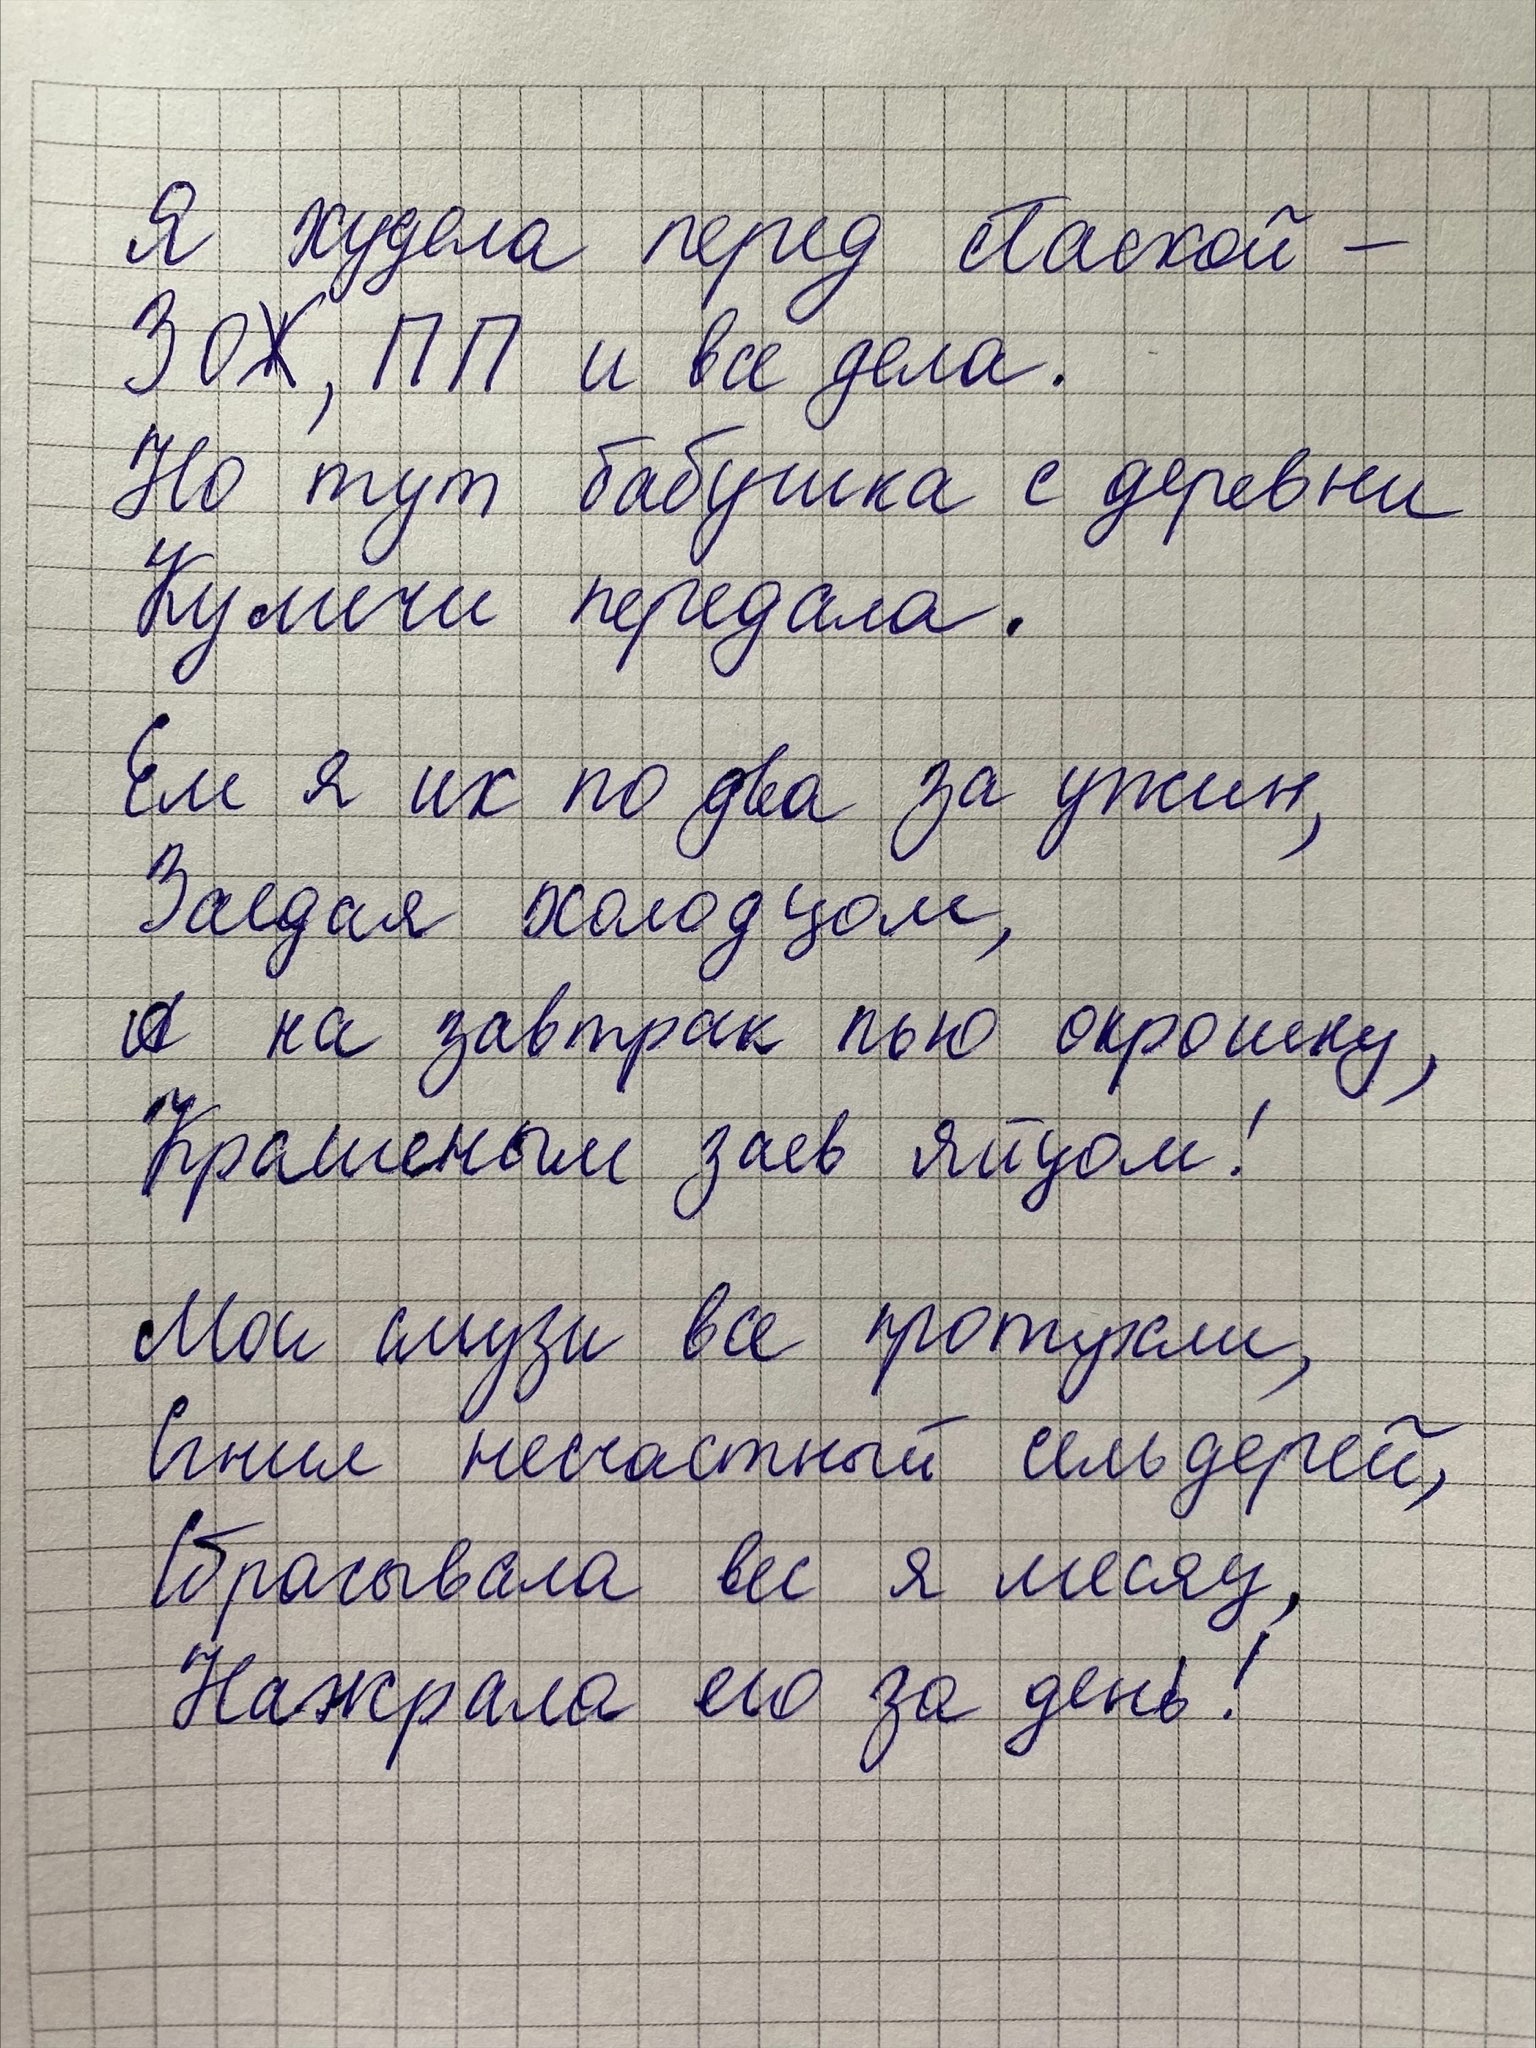 Я худела перед Паской –
ЗОЖ, ПП и все дела.
Но тут бабушка с деревни
Куличи передала.
Ем я их по два за ужин,
Заедая холодцом,
А на завтрак пью окрошку,
Крашеным заев яйцом!
Мои смузи все протухли,
Сгнил несчастный сельдерей,
Сбрасывала вес я месяц,
Нажрала его за день!